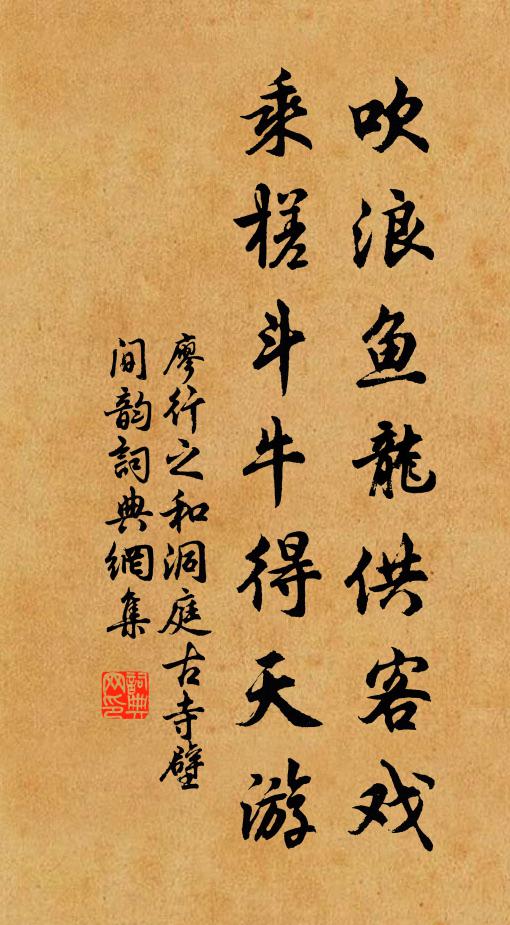 吹浪鱼龍供客戏
乘槎斗牛得天游
廖行之和洞庭古寺壁
间韵詞典網集
詞典
网印